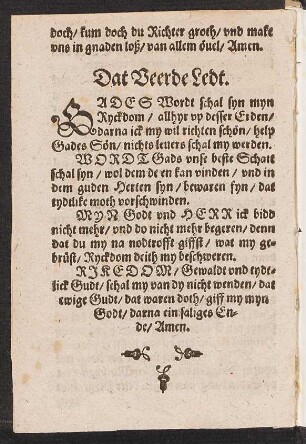 doch/ kum doch du Richter groth/ vnd make
vns in gnaden loß/ van allem övel/ Amen.
Dat Veerde Ledt.
GADES Wordt schal syn myn
Ryckdom/ allhyr vp desser Erden/
darna ick my wil richten schön/ help
Gades Sön/ nichts levers schal my werden.
WORDT Gads vnse beste Schatt
schal syn/ wol dem de en kan vinden/ vnd in
dem guden Herten syn/ bewaren fyn/ dat
tydtlike moth vorschwinden.
MYN Godt vnd HERR ick bidd
nicht mehr/ vnd do nicht mehr begeren/ denn
dat du my na nodtrofft giffst/ wat my ge-
brüst/ Ryckdom deith my beschweren.
RIKEDOM/ Gewaldt vnd tydt-
lick Gudt/ schal my van dy nicht wenden/ dat
ewige Gudt/ dat waren doth/ giff my myn
Godt/ darna ein saliges En-
de/ Amen.